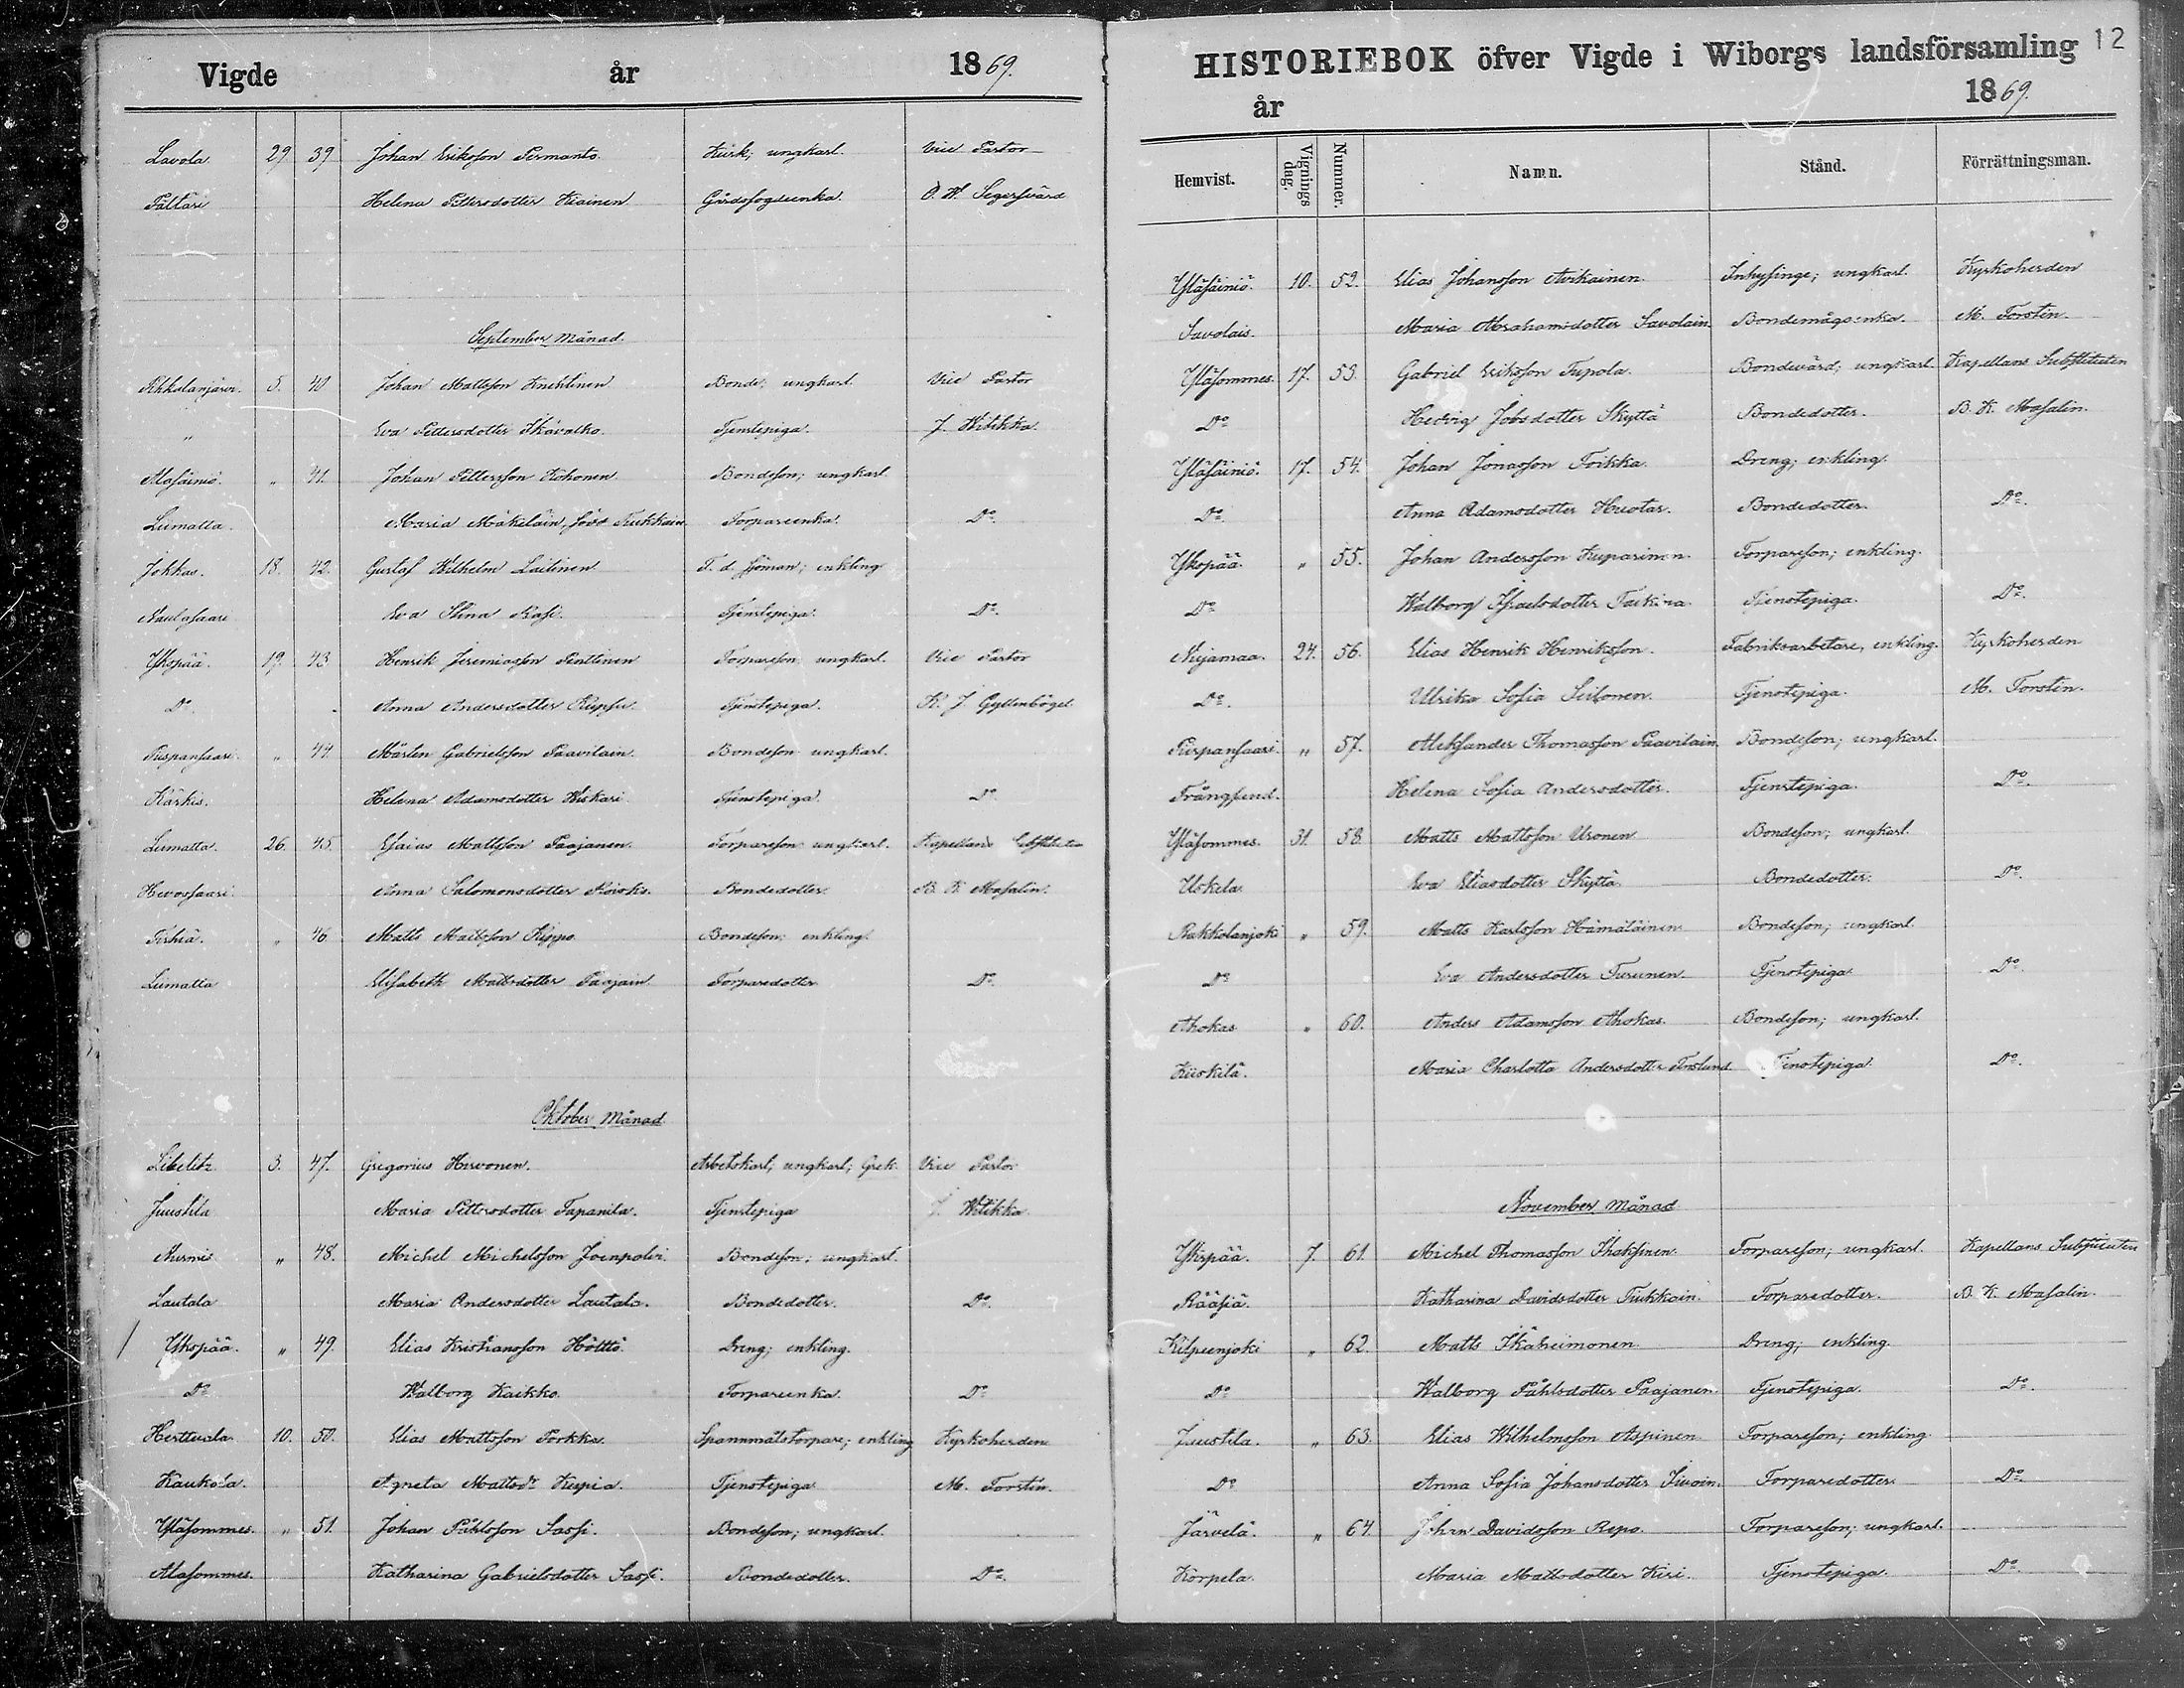 Vigde år 1869.
Lavola 29 39 Johan Eriksson Permanto. Kusk; ungkarl. Vice Pastor
Pältäri Helena Pettersdotter Kiainen Gårdsfogdeenka. O. W. Segersvärd
September Månad.
5. 40 Johan Mattsson Bonde; ungkarl. Vice Pastor
" Eva Pettersdotter Ikävalko. Tjenstepiga. J. Witikka
Alasäiniö. " 41. Johan Pettersson Kohonen Bondeson; ungkarl.
Lumatta. Maria Mäkeläin, född Tiukkain. Torpareenka. Do.
Jokkas. 18. 42. Gustaf Wilhelm Laitinen F. d. Sjöman; enkling
Naulasaari Eva Stina Tjenstepiga. Do.
Ykspää. 19. 43 Henrik Jeremiasson Penttinen Torpareson ungkarl. Vice Pastor
Do. Anna Andersdotter Tjenstepiga. K. J. Gyllenbögel
" 44. Mårten Gabrielsson Paavilain. Bondeson ungkarl.
Kärkis. Helena Adamsdotter Wiskari Tjenstepiga. Do
Lumatta. 26. 45. Esaias Mattsson Paajanen. Torpareson ungkarl. Kapellans
Hevossaari. Anna Salomonsdotter Bondedotter. B. K. Masalin.
" 46. Matts Mattsson Bondeson; enkling.
Lumatta Elisabeth Mattsdotter Paajain Torparedotter Do.
Oktober Månad
Libelitz 3. 47. Gregorius Hirvonen. Arbetskarl; ungkarl; Grek. Vice Pastor
Juustila Maria Pettersdotter Tapanila. Tjenstepiga J. Witikka
Nurmis " 48. Michel Michelsson Joenpolvi. Bondeson; ungkarl.
Lautala Maria Andersdotter Lautala. Bondedotter. Do.
Ykspää. " 49. Elias Kristiansson Hölttö. Dreng; enkling.
Do Walborg Kaikko. Torpareenka. Do
Herttuala 10. 50. Elias Mattsson Porkka. Spannmålstorpare; enkling Kyrkoherden
Kaukola. Agneta Mattsdr Kupia. Tjenstepiga M. Forstén.
Yläsommes. " 51. Johan Påhlsson Sassi. Bondeson; ungkarl.
Alasommes. Katharina Gabrielsdotter Sassi. Bondedotter. Do.
12
HISTORIEBOK öfver Vigde i Wiborgs landsförsamling
år 1869.
Hemvist. Vignings dag. Nummer. Namn. Stånd. Förrättningsman.
Yläsäiniö. 10. 52. Elias Johansson Avikainen. Inhysinge; ungkarl. Kyrkoherden
Savolais. Maria Abrahamsdotter Savolain. Bondemågsenka. M. Forstén.
Yläsommes. 17. 53. Gabriel Eriksson Tupola. Bondevärd; ungkarl. Kapellans Substituten
Do Hedvig Jobsdotter Skyttä Bondedotter. B. K. Masalin.
Yläsäiniö. 17. 54. Johan Jonasson Toikka. Dreng; enkling.
Do Anna Adamsdotter Huotar. Bondedotter. Do.
Ykspää. " 55. Johan Andersson Kuparinen. Torpareson; enkling.
Do Walborg Israelsdotter Taikina. Tjenstepiga. Do.
Nuijamaa. 24. 56. Elias Henrik Henriksson. Fabriksarbetare, enkling. Kyrkoherden
Do. Ulrika Sofia Seitonen. Tjenstepiga. M. Forstén.
" 57. Aleksander Thomasson Paavilain. Bondeson; ungkarl.
Trångsund. Helena Sofia Andersdotter. Tjenstepiga. Do.
Yläsommes. 31. 58. Matts Mattsson Uronen Bondeson; ungkarl.
Uskela. Eva Eliasdotter Skyttä Bondedotter. Do.
Rakkolanjoki " 59. Matts Karlsson Hämäläinen Bondeson; ungkarl.
Do Eva Andersdotter Turunen. Tjenstepiga Do
Ahokas " 60. Anders Adamsson Ahokas. Bondeson; ungkarl.
Kiiskilä. Maria Charlotta Andersdotter Forslund Tjenstepiga Do.
November Månad
Ykspää. 7. 61. Michel Thomasson Ihaksinen. Torpareson; ungkarl. Kapellans Substituten
Rääsiä. Katharina Davidsdotter Tiukkain. Torparedotter. B. K. Masalin.
Kilpeenjoki " 62. Matts Ikäheimonen. Dreng; enkling.
Do Walborg Påhlsdotter Paajanen. Tjenstepiga. Do.
Juustila. " 63. Elias Wilhelmsson Aspinen. Torpareson; enkling.
Do Anna Sofia Johansdotter Torparedotter. Do.
Järvelä. " 64. Johan Davidsson Repo. Torpareson; ungkarl.
Korpela Maria Mattsdotter Kiri. Tjenstepiga. Do.